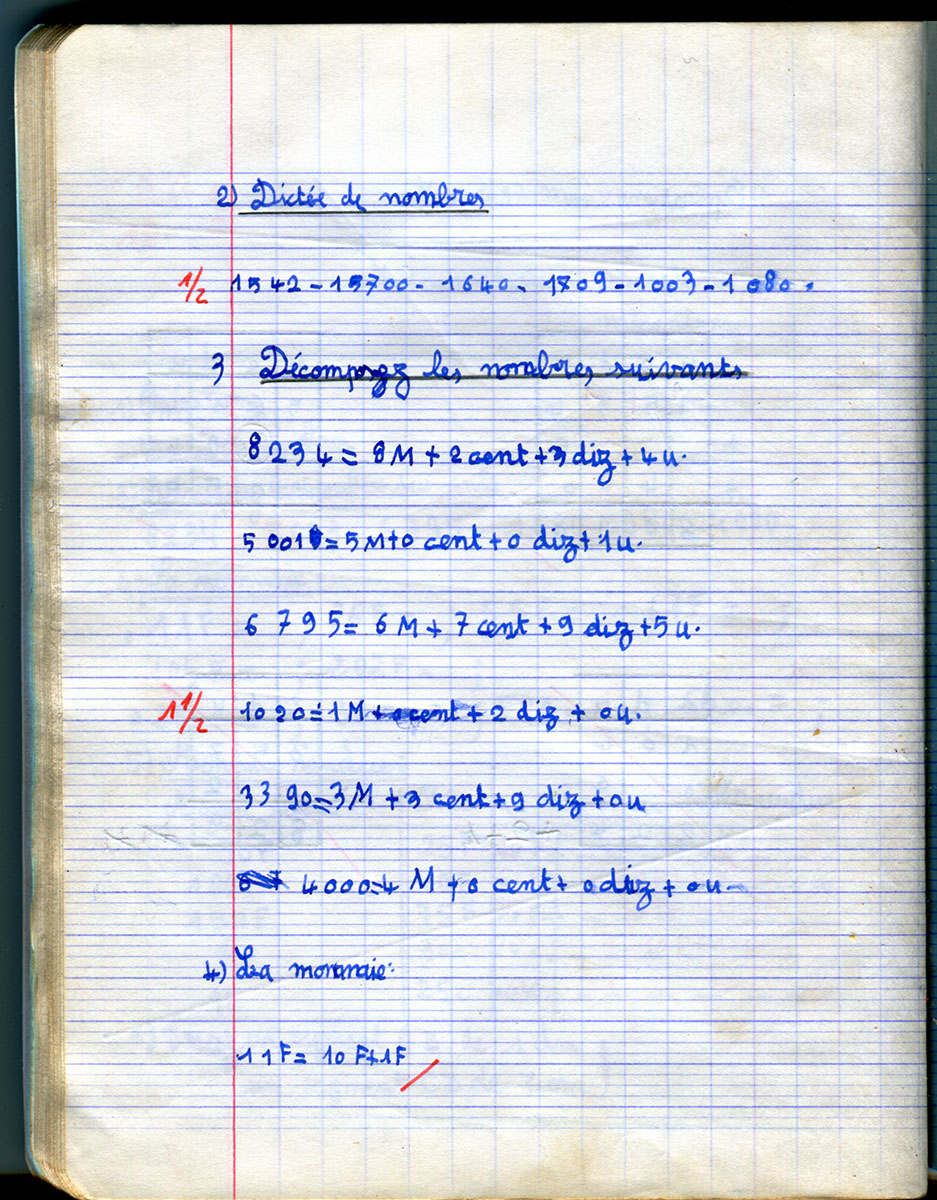 2) Dictée de nombres
1/2 1542 - 15700 - 1640 - 1709 - 1003 - 1080.
3 Décomposez les nombres suivants
8234 = 8M + 2 cent + 3 diz + 4u.
5001 = 5M + 0 cent + 0 diz + 1u.
6795 = 6M + 7 cent + 9 diz + 5u.
1 1/2 1020 = 1M + 0 cent + 2 diz + 0u.
3390 = 3M + 3 cent + 9 diz + 0u
4000 = 4M + 0 cent + 0 diz + 0u
4) La monnaie:
11F = 10F + 1F